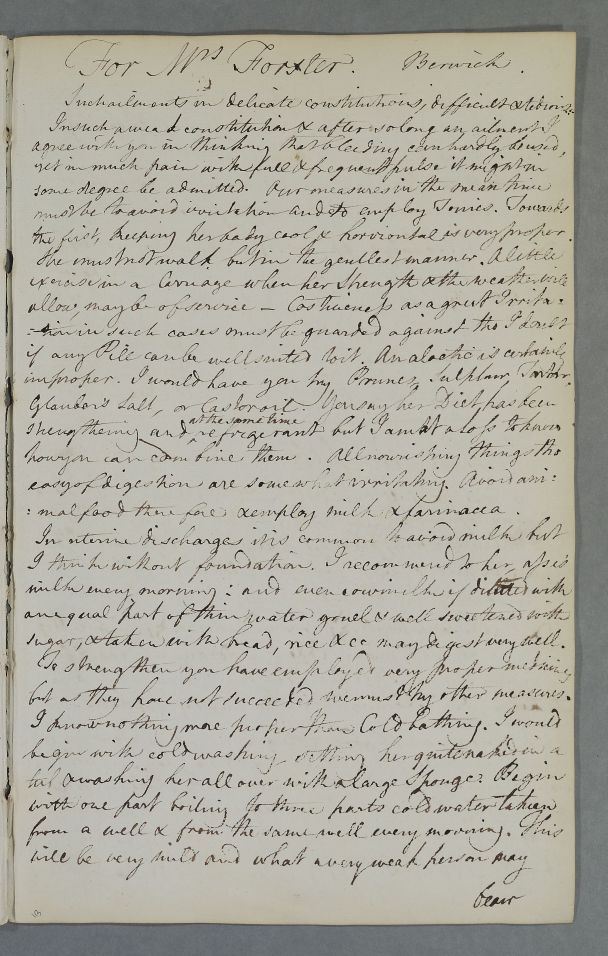 For Mrs Forster. Berwick.
Such ailments in delicate constitutions, difficult & tedious.
In such a weak constitution & after so long an ailment I
agree with you in thinking that bleeding can hardly be used,
yet in much pain with full & frequent pulse it might in
some degree be admitted. Our measures in the mean time
must be to avoid irritation and to employ Tonics. Towards
the first, keeping her body cool & horizontal is very proper.
She must not walk but in the gentlest manner. A little
exercise in a Carriage when her Strength & the weather will
allow, may be of service – Costiveness as a great Irrita:
:tion in such cases must be guarded against tho I doubt
if any Pill can be well suited to it. An aloetic is certainly
improper. I would have you try Prunes, Sulphur, Tartar,
Glauber's Salt, or Castor oil. You say her Diet has been
strengthening and at the same time refrigerant but I am at a loss to know
how you can combine them. All nourishing things tho
easy of digestion are somewhat irritating. Avoid ani:
:mal food therefore & employ milk & farinacea.
In uterine discharges it is common to avoid milk but
I think without foundation. I recommend to her, asses
milk every morning: and even cow milk if diluted with
an equal part of thin water gruel & well sweetened with
sugar, & taken with bread, rice &cc may digest very well.
To strengthen you have employed very proper medicines
but as they have not succeeded we must try other measures.
I know nothing more proper than Cold bathing. I would
begin with cold washing setting her quite naked in a
tub & washing her all over with a large Sponge: Begin
with one part boiling to three parts cold water taken
from a well & from the same well every morning. This
will be very mild and what a very weak person may
bear